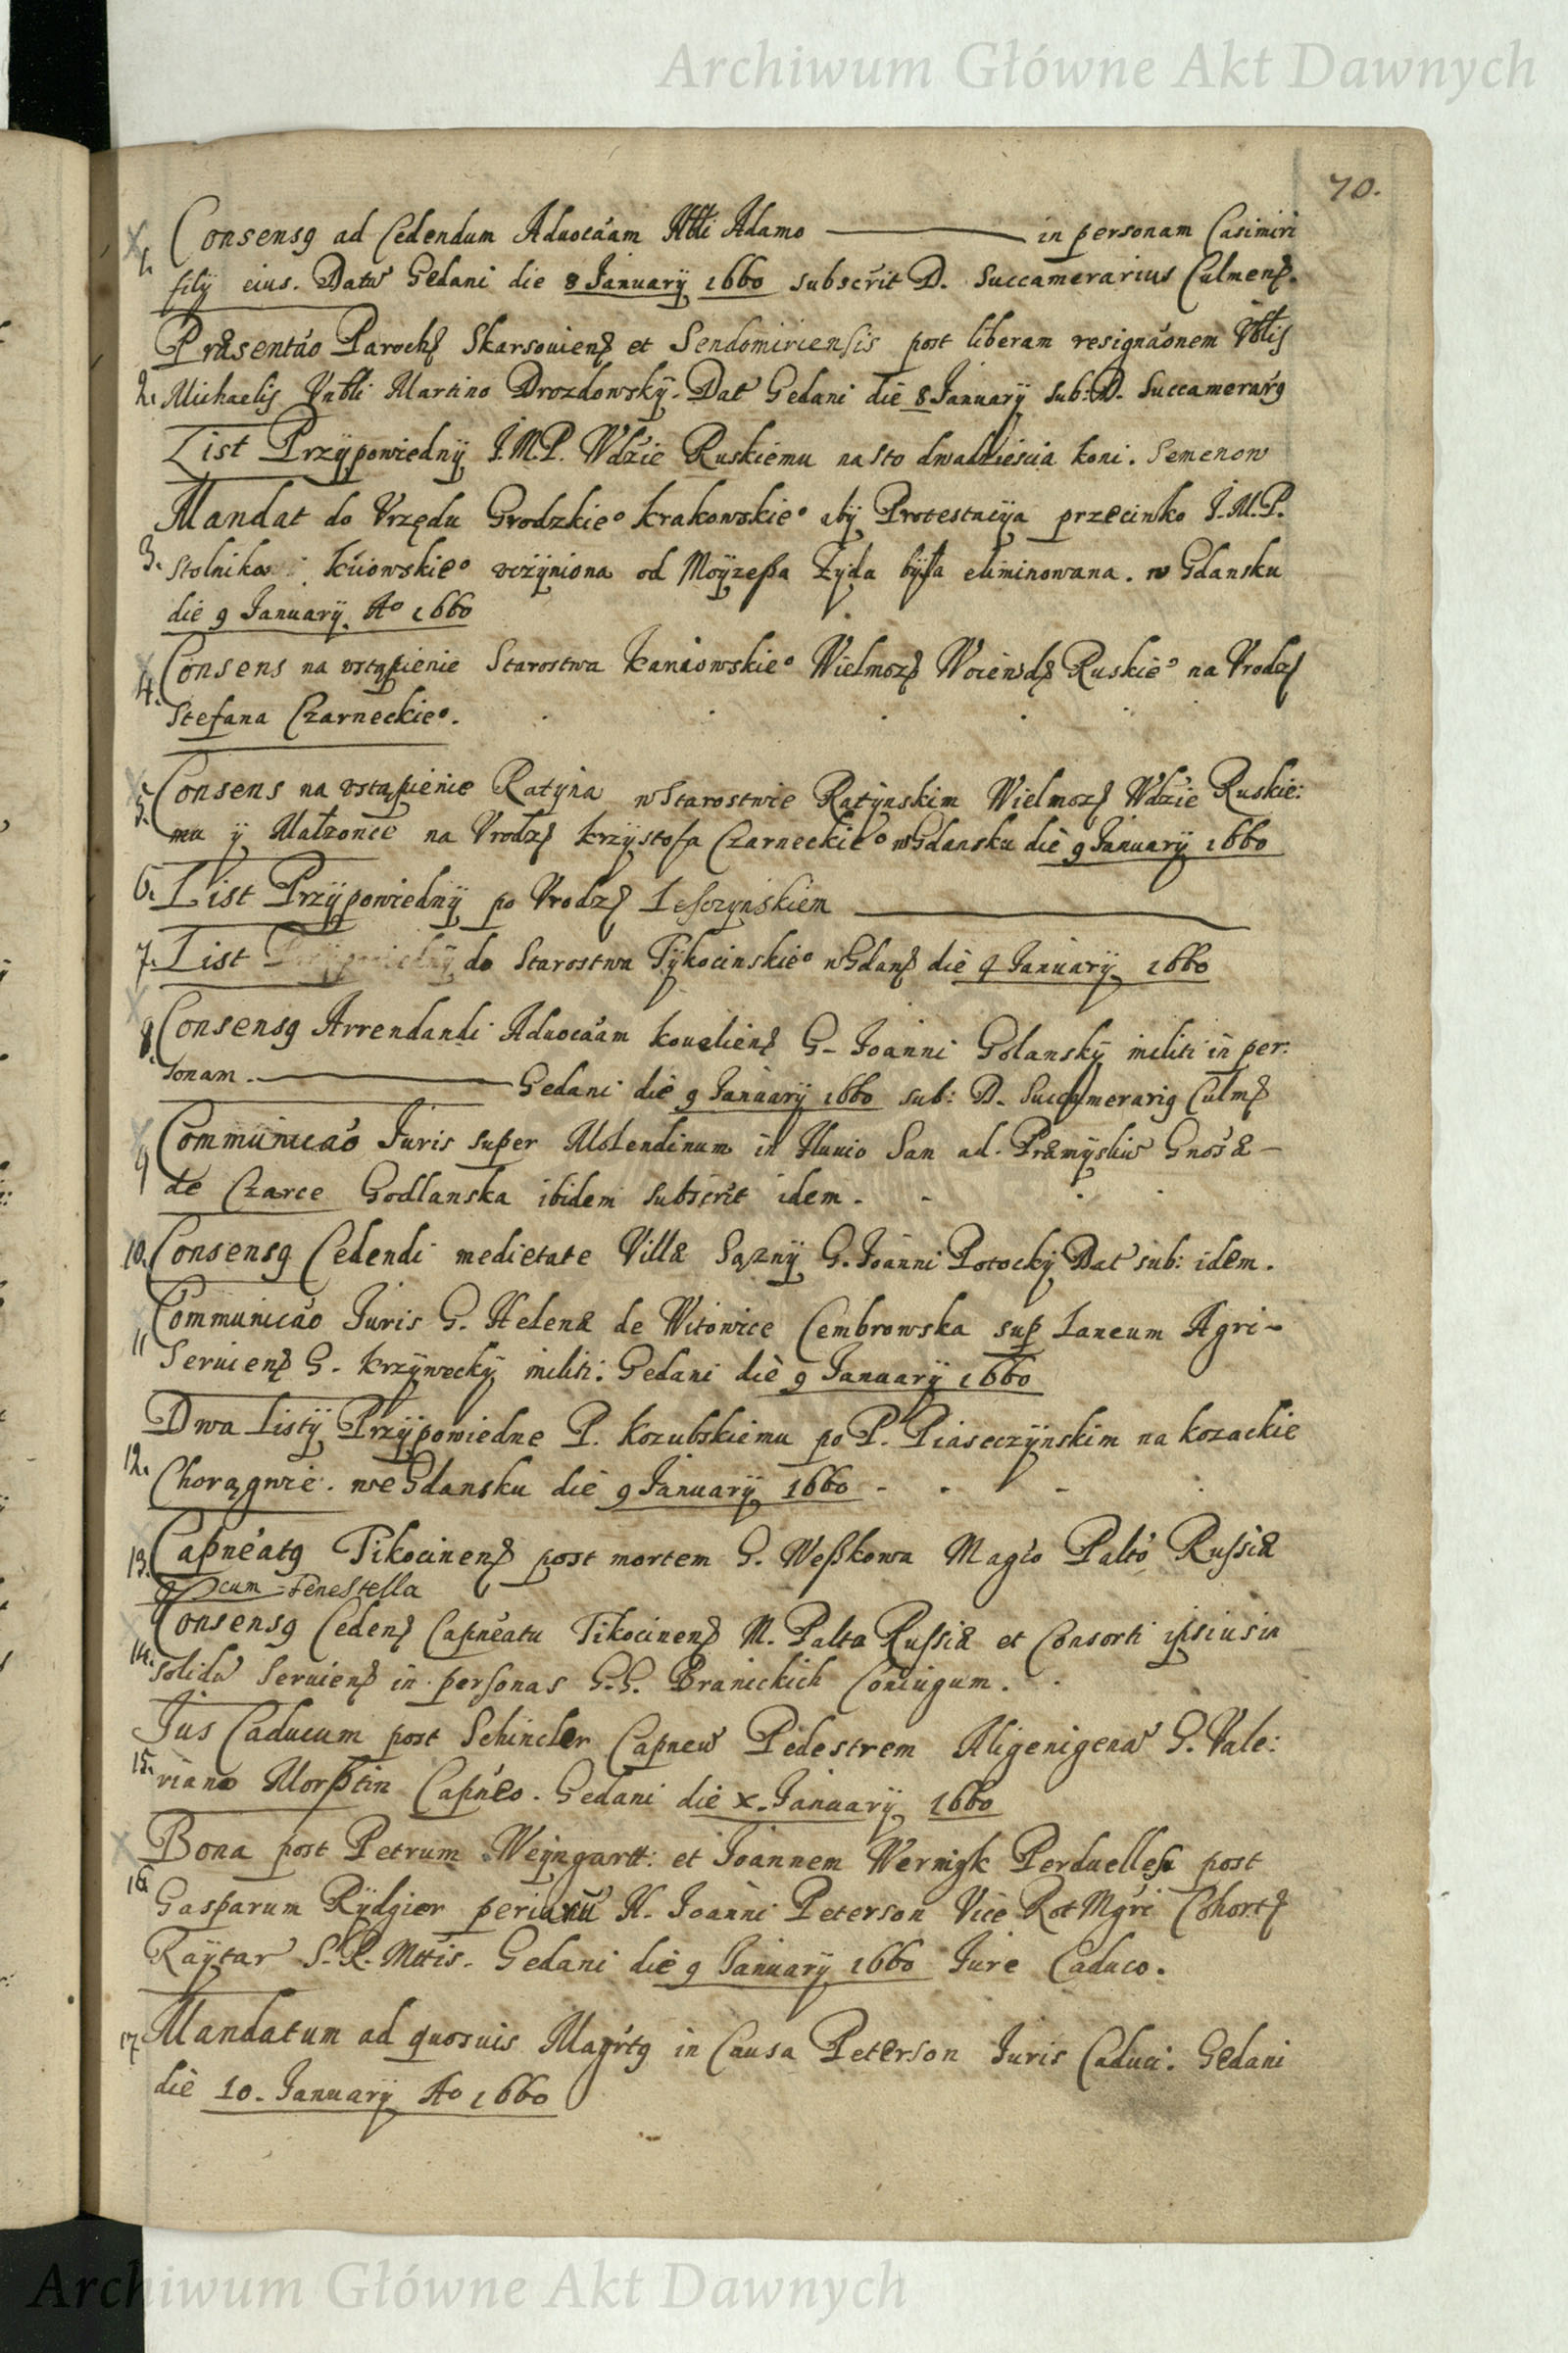 Archiwum Główne Akt Dawnych
70.
1. Consensq ad Cedendum Aduocãam Nbli Adamo — in personam Casimiri
filij eius. Datũ Gedani die 8 January 1660 subscrit D. Succamerarius Culmens.
Præsentão Paroch Skarsouiens et Sendomiriensis post liberam resignãonem Vblis
2. Michaelis Vnbli Martino Drozdowskÿ. Dat Gedani die 8 January sub: D. Succamerarq
List Przÿpowiednÿ J.M.P. Wdzie Ruskiemu na sto dwadzieścia koni. Semenow
Mandat do Vrzędu Grodzkieº krakowskieº abÿ Protestacÿa przeciwko J.M.P.
3. Stolnikowi kiiowskieº vczÿniona od Moÿzeßa Zÿda bÿła eliminowana. w Gdansku
die 9 January Aº 1660
4. Consens na vstąpienie Starostwa kaniowskieº Wielmoz Woiewd Ruskieº na Vrodz
Stefana Czarneckieº.
5. Consens na vstąpienie Ratÿna w Starostwie Ratÿnskim Wielmoz Wdzie Ruskie:
mu ÿ Małzonce na Vrodz krzÿstofa Czarneckieº w Gdansku die 9 January 1660
6. List Przÿpowiednÿ po Vrodz Lesczynskiem
7. List Przÿpowiednÿ do Starostwa Tÿkocinskieº w Gdans die 9 January 1660
8. Consensq Arrendandi Aduocãam koueliens G. Joanni Golanskÿ militi in per:
sonam. — Gedani die 9 January 1660 sub: D. Succamerariq Culm
9 Communicão Juris super Molendinum in fluuio San ad Præmysliũ Gnosæ
de Czarce Godlanska ibidem subscrit idem.
10. Consensq Cedendi medietate Villæ Sązny G. Joanni Potockÿ Dat sub: idem.
Communicão Juris G. Helenæ de Witowice Cembrowska sup Laneum Agri
11 Seruiens G. krzÿweckÿ militi: Gedani die 9 January 1660
Dwa Listÿ Przÿpowiedne P. kozubskiemu po P. Piaseczÿnskim na kozackie
12. Chorągwie. we Gdansku die 9 January 1660
13. Capneatq Tikocinens post mortem G. Weßkowa Magco Palto Russiæ
cum Fenestella
Consensq Cedens Capneatu Tikocinens M. Palta Russiæ et Consorti ipsius in
14. solidũ Seruiens in personas G.G. Branickich Coniugum.
Jus Caducum post Schincler Capneũ Pedestrem Aligenigenã G. Vale:
15. riano Morßtin Capneo. Gedani die x. January 1660
Bona post Petrum Weÿngartt: et Joannem Wernigk Perduelles post
16 Gasparum Rÿdgier N. Joanni Peterson Vice Rot Mgri Cohort
Raÿtar S.R. Mttis. Gedani die 9 January 1660 Jure Caduco.
17 Mandatum ad quosuis Magrtq in Causa Peterson Juris Caduci. Gedani
die 10. January Aº 1660
Archiwum Główne Akt Dawnych